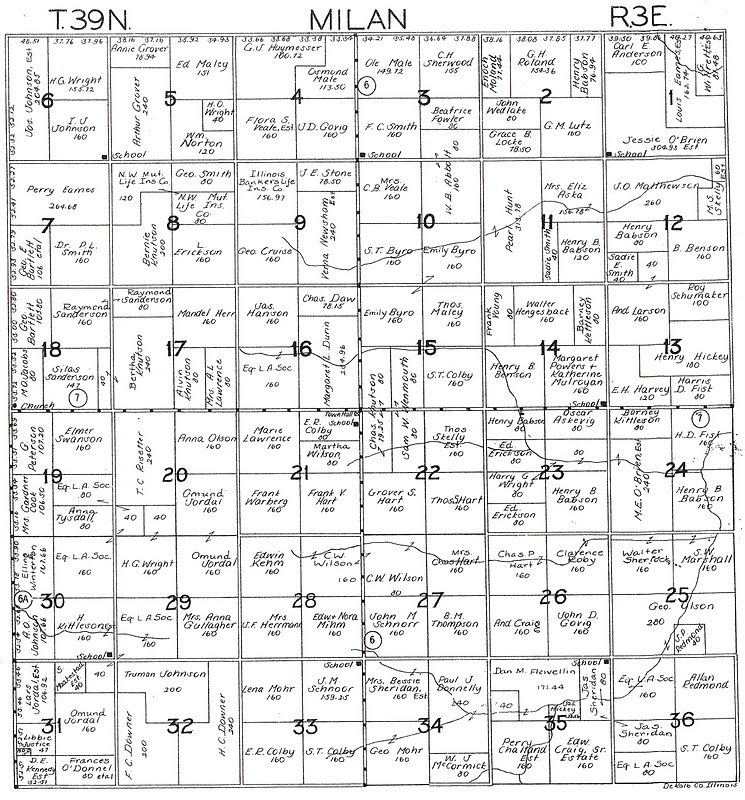 T.39N. MILAN R.3E.
48.51 37.76 37.96 38.16 37.16 35.92 34.93 33.66 33.68 34.21 35.48 36.64 37.88 38.16 38.08 37.85 37.77 39.50
Jos. Johnson, Est
204.85
H.G. Wright
155.72
6
I. J
Johnson
160
Annie Grover
78.94
Ed Maley
151
Arthur Grover
240
5
H.O.
Wright
40
Wm.
Norton
120
School
G.J. Huymesser
180.72
Osmond
Male
113.50
4
Flora S.
Veale, Est
160
J.D. Govig
160
Ole Male
149.72
C.H
Sherwood
155
6
3
Beatrice
Fowler
80
F.C. Smith
160
School
Enoch
Moland
77.44
G.H.
Roland
154.36
Henry
Babson
76.94
John
Wedlake
80
2
Grace B.
Locke
78.50
G.M. Lutz
160
Carl E
Anderson
100
Louis Eames, Est
1
Jessie O'Brien
304.93 Est
School
Perry Eames
264.68
7
Geo. E
Bartlett
106 etal
Dr. P.L.
Smith
160
N.W. Mut.
Life Ins Co
120
Geo. Smith
80
N.W. Mut.
Life Ins.
Co
80
8
Bernie
Knutson
200
L
Erickson
160
Illinois
Bankers Life
Ins Co
156.97
J.E. Stone
78.50
9
Verna Newsham
240
Est
Geo. Cruise
160
Mrs.
C.B. Veale
160
W.B. Abott
160
10
S.T. Byro
160
Emily Byro
160
Pearl Hunt
313.78
Mrs. Eliz
Aska
156.78
11
Sadie Smith
40
Henry B.
Babson
120
J.O. Matthewson
260
M.S.
Skelly
60
Est
12
Henry
Babson
80
Sadie
E.
Smith
40
40
B. Benson
160
Geo
Bartlett
103.80
Raymond
Sanderson
160
18
M O Jacobs
80
Silas
Sanderson
147
7
Church
Raymond
Sanderson
80
Mandel Herr
160
17
Bertha Knutson
240
Alvin
Knutson
80
Mrs. A L
Lawrence
80
Jas.
Hanson
160
Chas. Daw
78.15
16
Eq. L.A. Soc
160
Margaret L. Dunn
264.96
Emily Byro
160
Thos.
Maley
160
15
Chas. Knutson
79.25
Sam W. Wenmouth
80
S.T. Colby
160
Frank
Young
80
Walter
Hengesback
160
Barney
Kittleson
80
14
Henry B
Benson
160
Margaret
Powers +
Katherine
Mulroyan
160
School
And Larson
160
Roy
Schumaker
100
13
Henry Hickey
180
E.H. Harvey
120
Harris
D. Fist
80
G.
Peterson
107.20
Elmer
Swanson
160
19
Mrs. Gardner
Cook
106.50
Eq. L.A. Soc.
80
Anna
Tysdall
80
T.C. Riseter
240
Anna Olson
160
20
40
40
Omund
Jordal
160
Marie
Lawrence
160
E.R.
Colby
80
Townhall
School
Martha
Wilson
80
21
Frank
Warberg
160
Frank V.
Hart
160
Thos
Skelly
Est
160
22
Grover S.
Hart
160
Thos S Hart
160
Henry Babson
80
Oscar
Askevig
80
Ed
Erickson
80
80
23
Harry G
Wright
80
Ed.
Erickson
80
Henry B.
Babson
160
Barney
Kittleson
H.D. Fist
160
7
24
M.E. O'Brien, Est
240
Henry B
Babson
160
Elling
Winterton
107.66
Eq. L A Soc.
160
6A
30
A.O.
Johnson
107.66
H.
Kittleson
160
School
H.G. Wright
160
Omund
Jordal
160
29
Eq L A Soc
160
Mrs. Anna
Gullagher
160
Edwin
Kehm
160
C.W
Wilson
160
28
Mrs
J.F. Herrmann
160
Edw + Nora
Mihm
160
Mrs.
Chas Hart
160
C.W. Wilson
80
27
John M
Schnorr
160
6
B.M.
Thompson
160
Chas P
Hart
160
Clarence
Roby
160
26
And Craig
160
John D.
Govig
160
Walter
Sherlock
160
S.W.
Marshall
160
25
Geo. Olson
280
J.P.
Redmond
40
Lars
Jordal, Est
104.92
S.
Est
40
40
Omund
Jordal
160
31
Libbie
Justice
47
D.E.
Kennedy
Est
52.51
Frances
O'Donnel
80 etal
Truman Johnson
200
32
F.C. Downer
200
H.C. Downer
240
Lena Mohr
160
J. M
Schnoor
159.25
School
33
E.R. Colby
160
S.T. Colby
160
Mrs. Bessie
Sheridan
160 Est
Paul J
Donnelly
140
34
Geo Mohr
160
W.J
McCormick
80
Dan M. Flewellin
171.44
School
Jas.
Sheridan
80
40
Jas.
Hickey
35
Perry
Challand
Est
160
Edw.
Craig, Sr.
Estate
160
Eq. L A Soc
160
Allan
Redmond
36
Jas.
Sheridan
80
Eq. L A Soc
80
S.T. Colby
160
DeKalb Co. Illinois